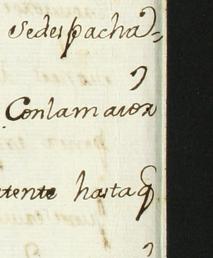 Sedespacha
Conlamaior
tente hasta q